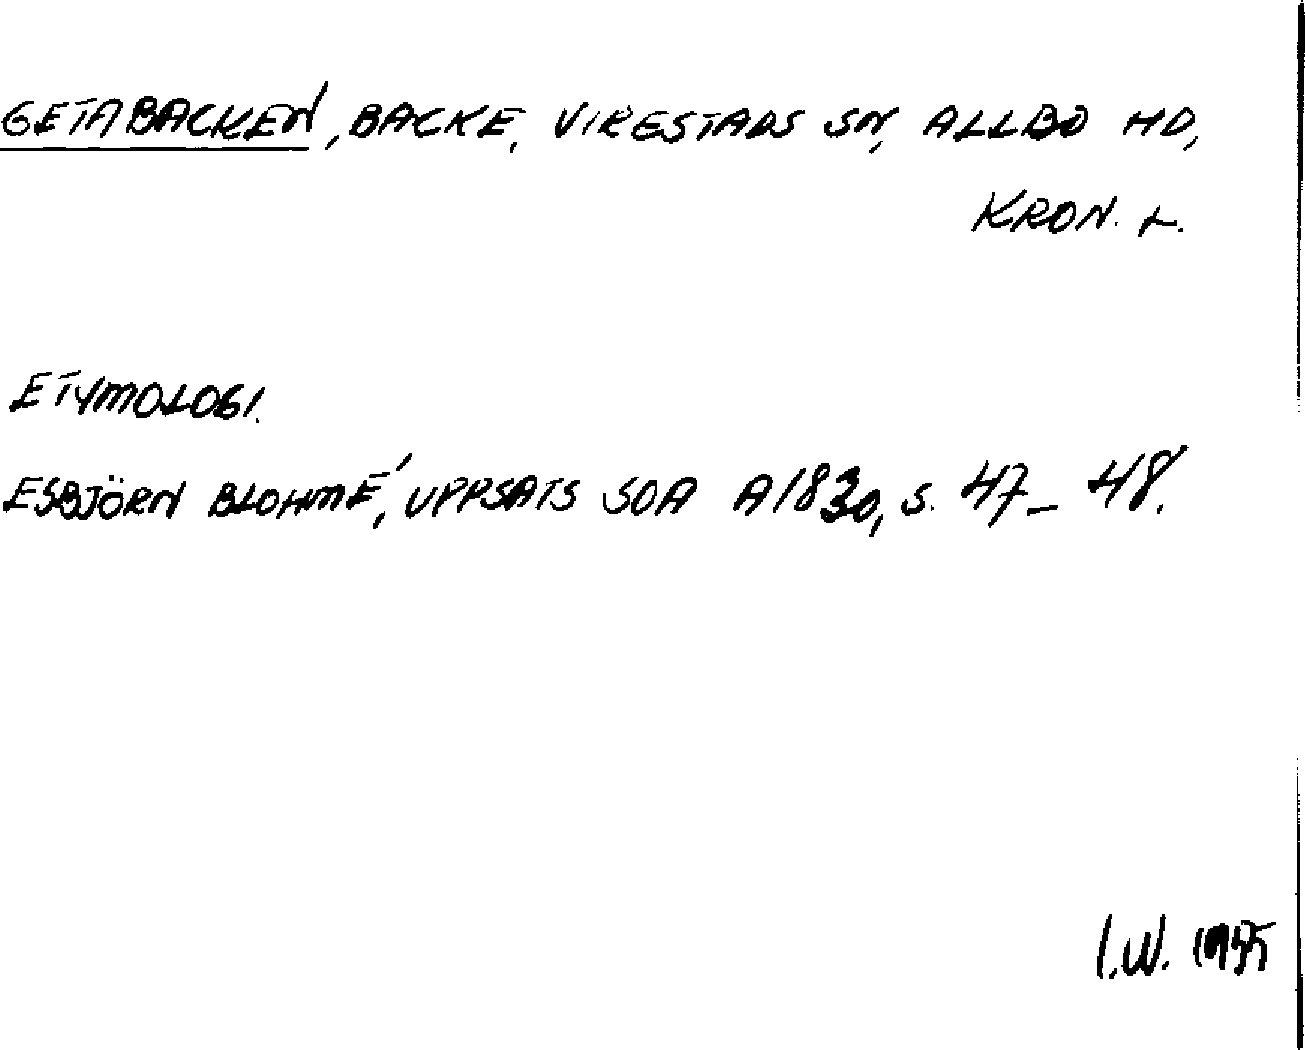 GETABACKEN, BACKE, VIRESTADS SN, ALLBO HD,
KRON. L.
ETYMOLOGI.
ESBJÖRN BLOHMÉ, UPPSATS SOA A1830, s. 47-48.
I.W. 1995